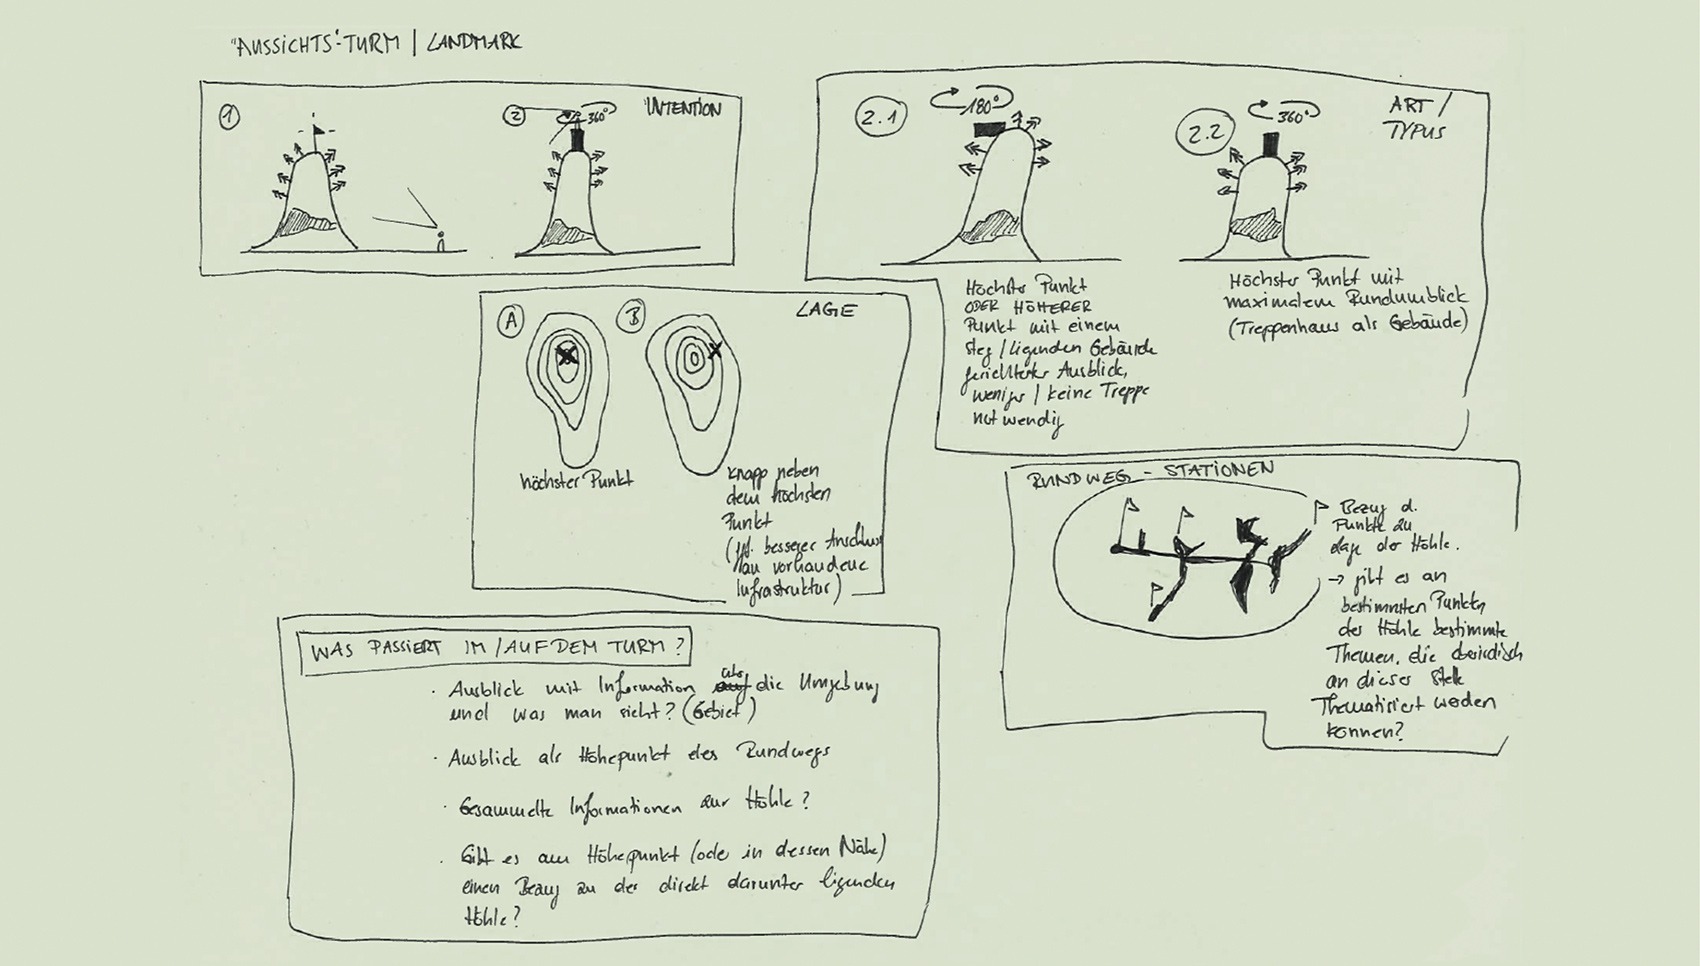 "AUSSICHTS"-TURM | LANDMARK
INTENTION
1
2
360°
ART /
TYPUS
2.1
180°
2.2
360°
Höchster Punkt
ODER HÖHERER
Punkt mit einem
Steg / ligenden Gebäude
gerichteter Ausblick,
weniger / keine Treppe
notwendig
Höchster Punkt mit
maximalem Rundumblick
(Treppenhaus als Gebäude)
LAGE
A
B
höchster Punkt
knapp neben
dem höchsten
Punkt
besserer Anschluss
an vorhandene
Infrastruktur)
RUNDWEG - STATIONEN
Bezug d.
Punkte zu
Lage der Höhle.
→ gibt es an
bestimmten Punkten
der Höhle bestimmte
Themen, die oberirdisch
an dieser Stelle
Thematisiert werden
können?
WAS PASSIERT IM / AUF DEM TURM ?
· Ausblick mit Information über die Umgebung
und was man sieht? (Gebiet)
· Ausblick als Höhepunkt des Rundwegs
· Gesammelte Informationen zur Höhle?
· Gibt es am Höhepunkt (oder in dessen Nähe)
einen Bezug zu der direkt darunter ligenden
Höhle?